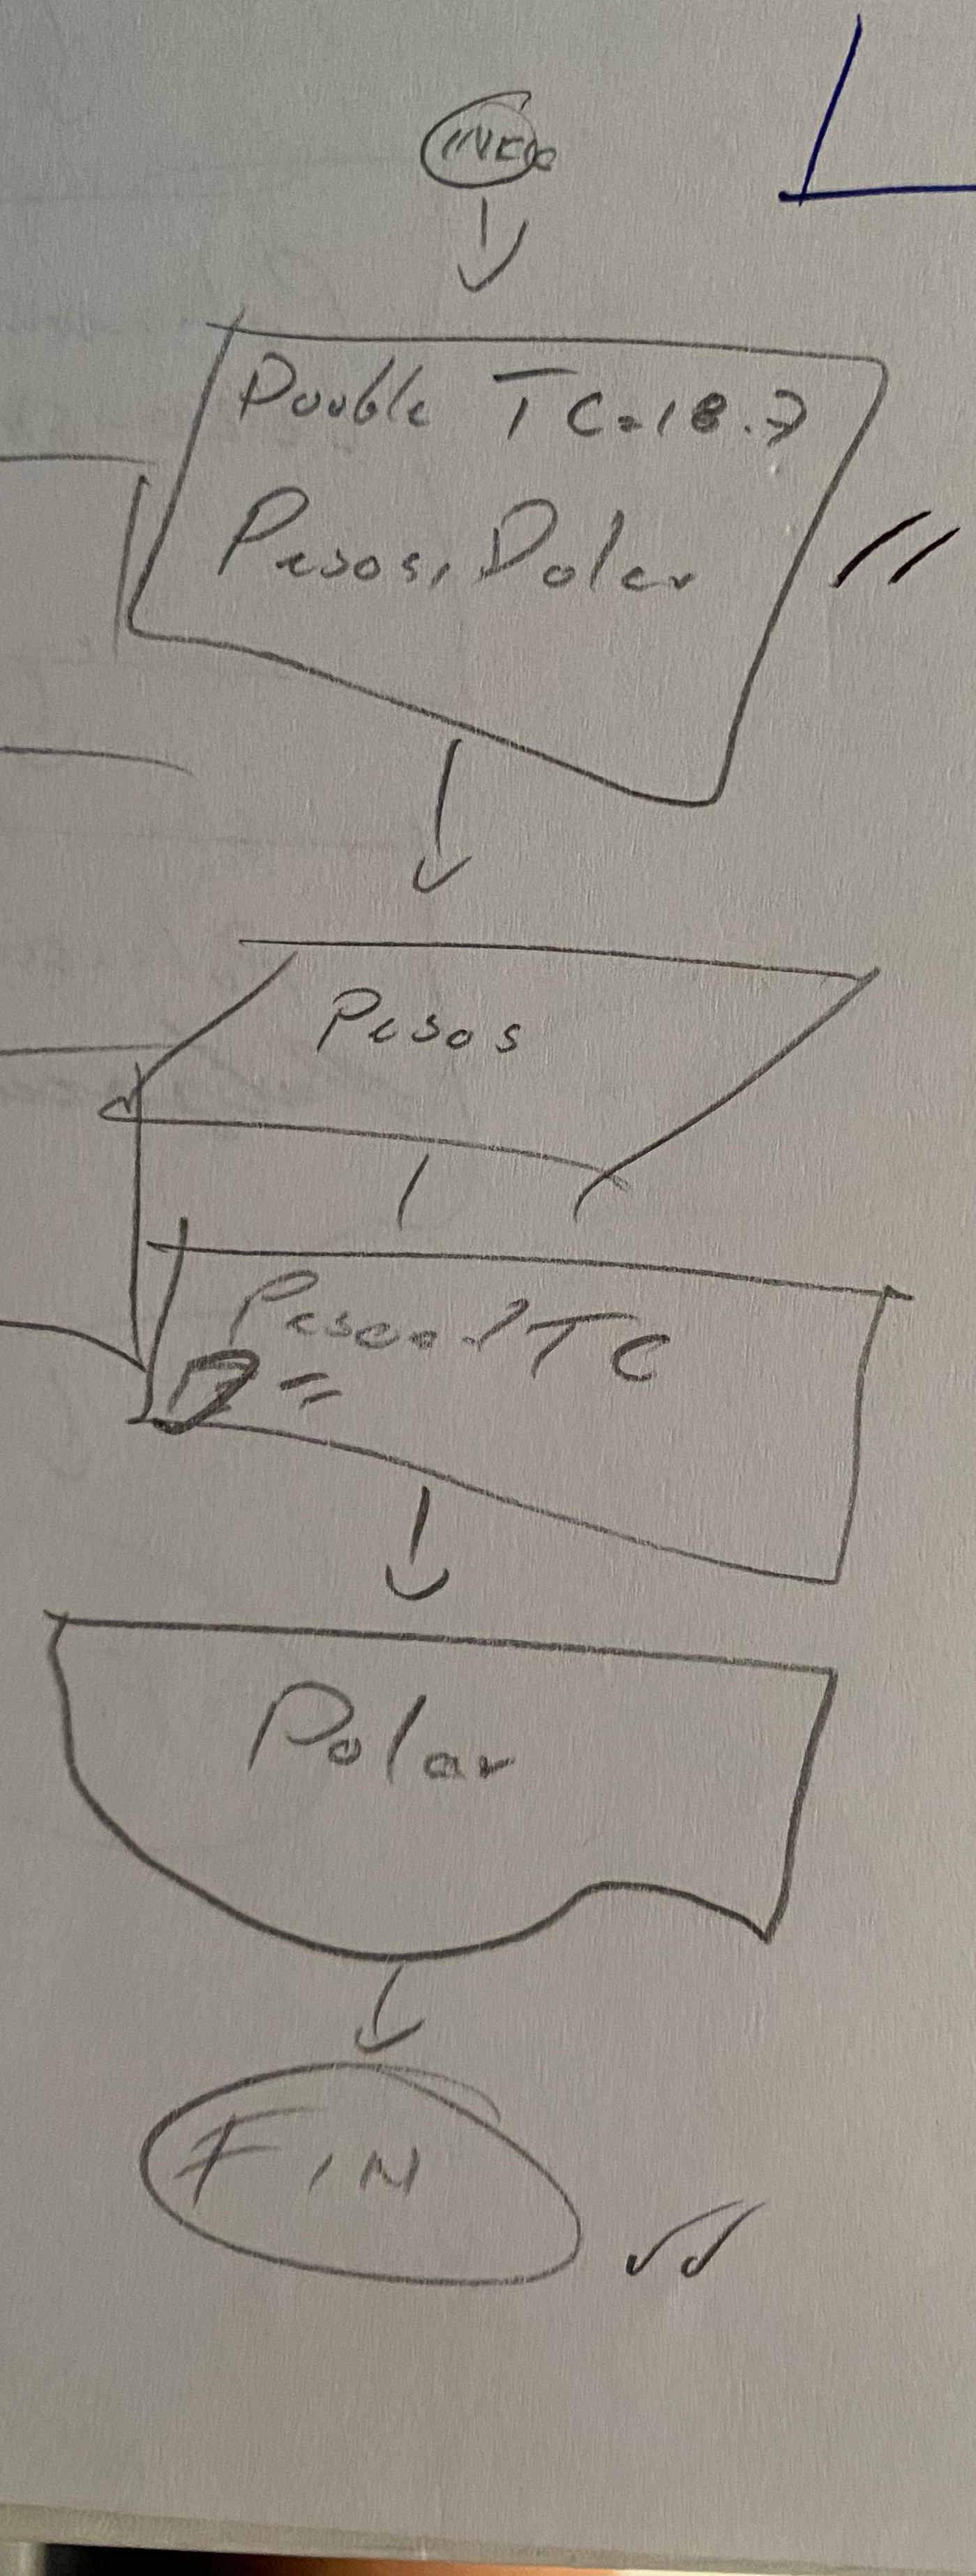 INICIO
Double TC=18.7
Pesos, Dolar
Pesos
Pesos / TC
D =
Dolar
FIN